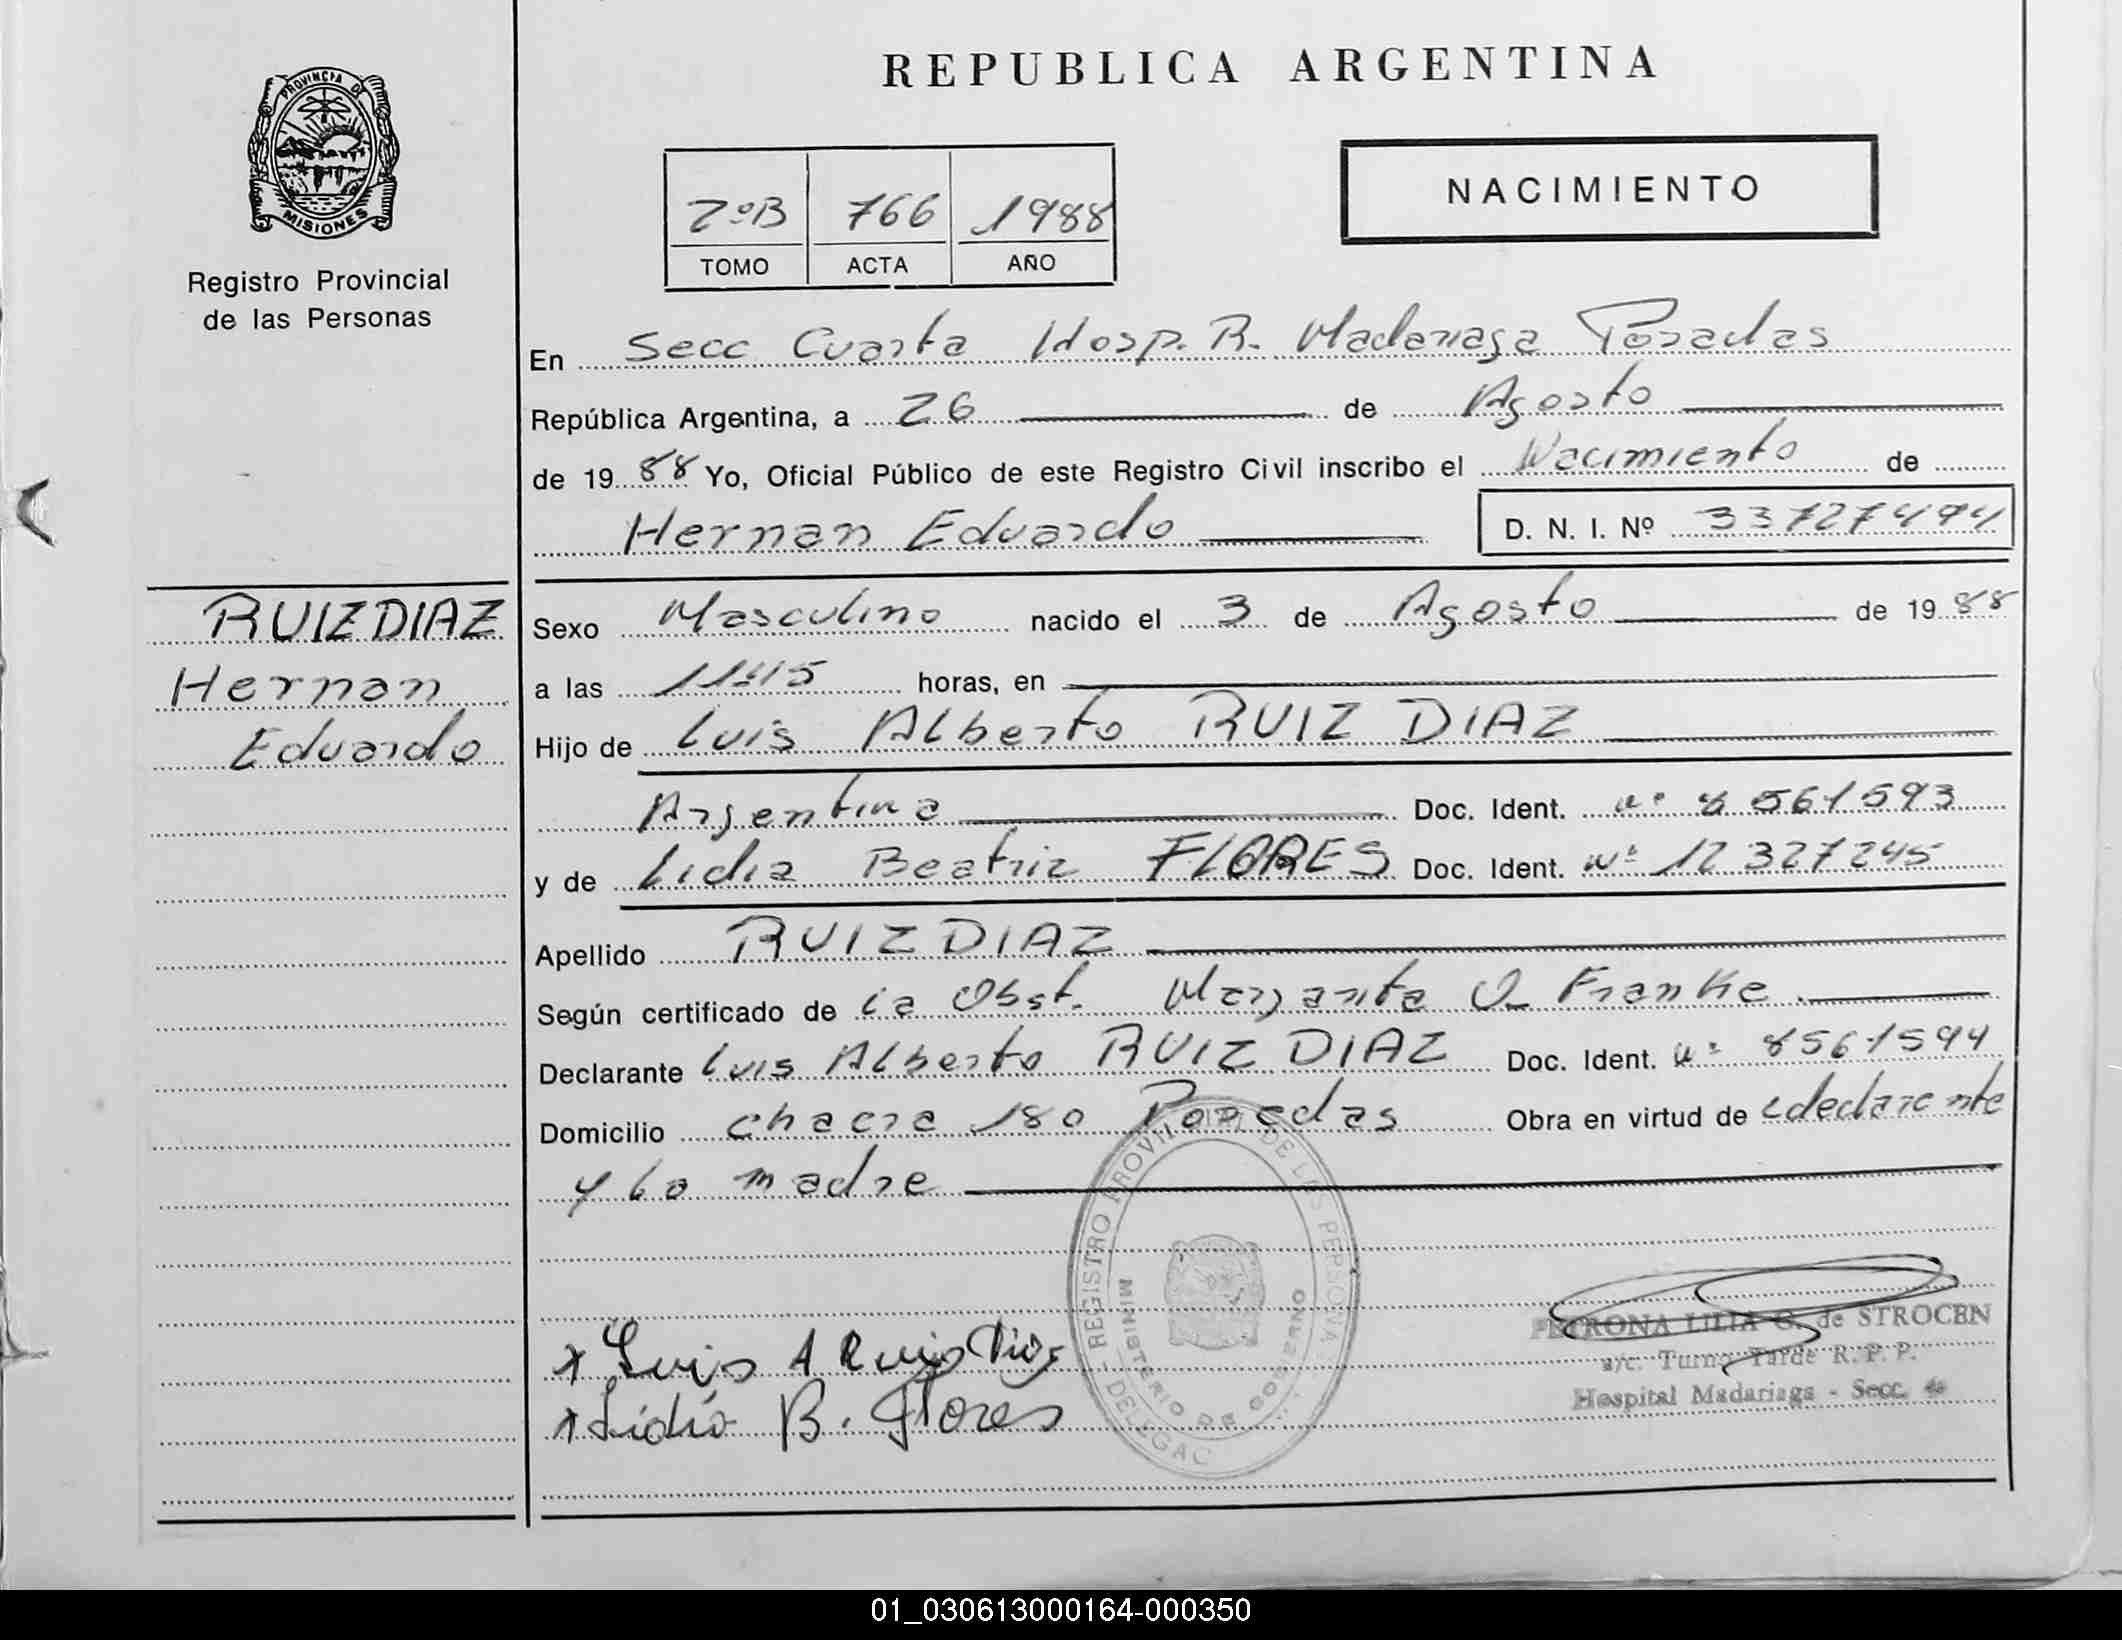 REPUBLICA ARGENTINA
PROVINCIA DE
MISIONES
Registro Provincial
de las Personas
2ºB 766 1988
TOMO ACTA AÑO
NACIMIENTO
En Secc Cuarta Hosp. R. Madariaga Posadas
República Argentina, a 26 de Agosto
de 1988 Yo, Oficial Público de este Registro Civil inscribo el Nacimiento de
Hernan Eduardo D. N. I. Nº 33727494
RUIZ DIAZ
Hernan
Eduardo
Sexo Masculino nacido el 3 de Agosto de 1988
a las horas, en
Hijo de Luis Alberto RUIZ DIAZ
Argentina Doc. Ident. nº 8561593
y de Lidia Beatriz FLORES Doc. Ident. Nº 12327245
Apellido RUIZ DIAZ
Según certificado de la Obst. Margarita O. Franke
Declarante Luis Alberto RUIZ DIAZ Doc. Ident. nº 8561594
Domicilio chacra 180 Posadas Obra en virtud de declarante
y la madre
REGISTRO PROVINCIAL DE LAS PERSONAS
MINISTERIO DE GOBIERNO
x Luis A Ruiz Diaz
x Lidia B. Flores
PETRONA LILIA G. de STROCEN
a/c. Turno Tarde R. P. P.
Hospital Madariaga - Secc. 4a
01_030613000164-000350